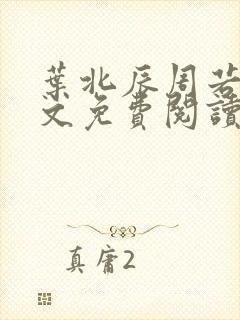 葉北辰周若
文免費閱讀
真庸2